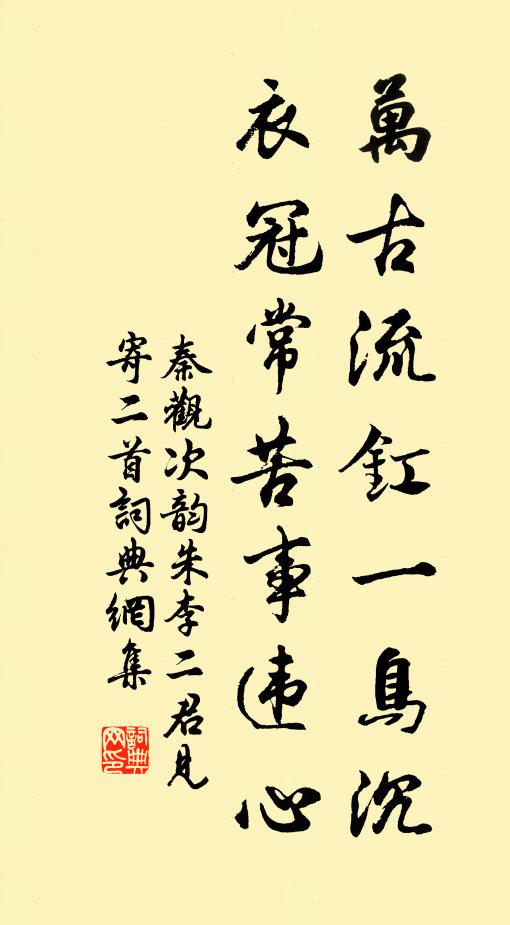 萬古流釭一鳥沉
衣冠常苦事违心
秦觀次韵朱李二君見
寄二首詞典網集
詞典網印